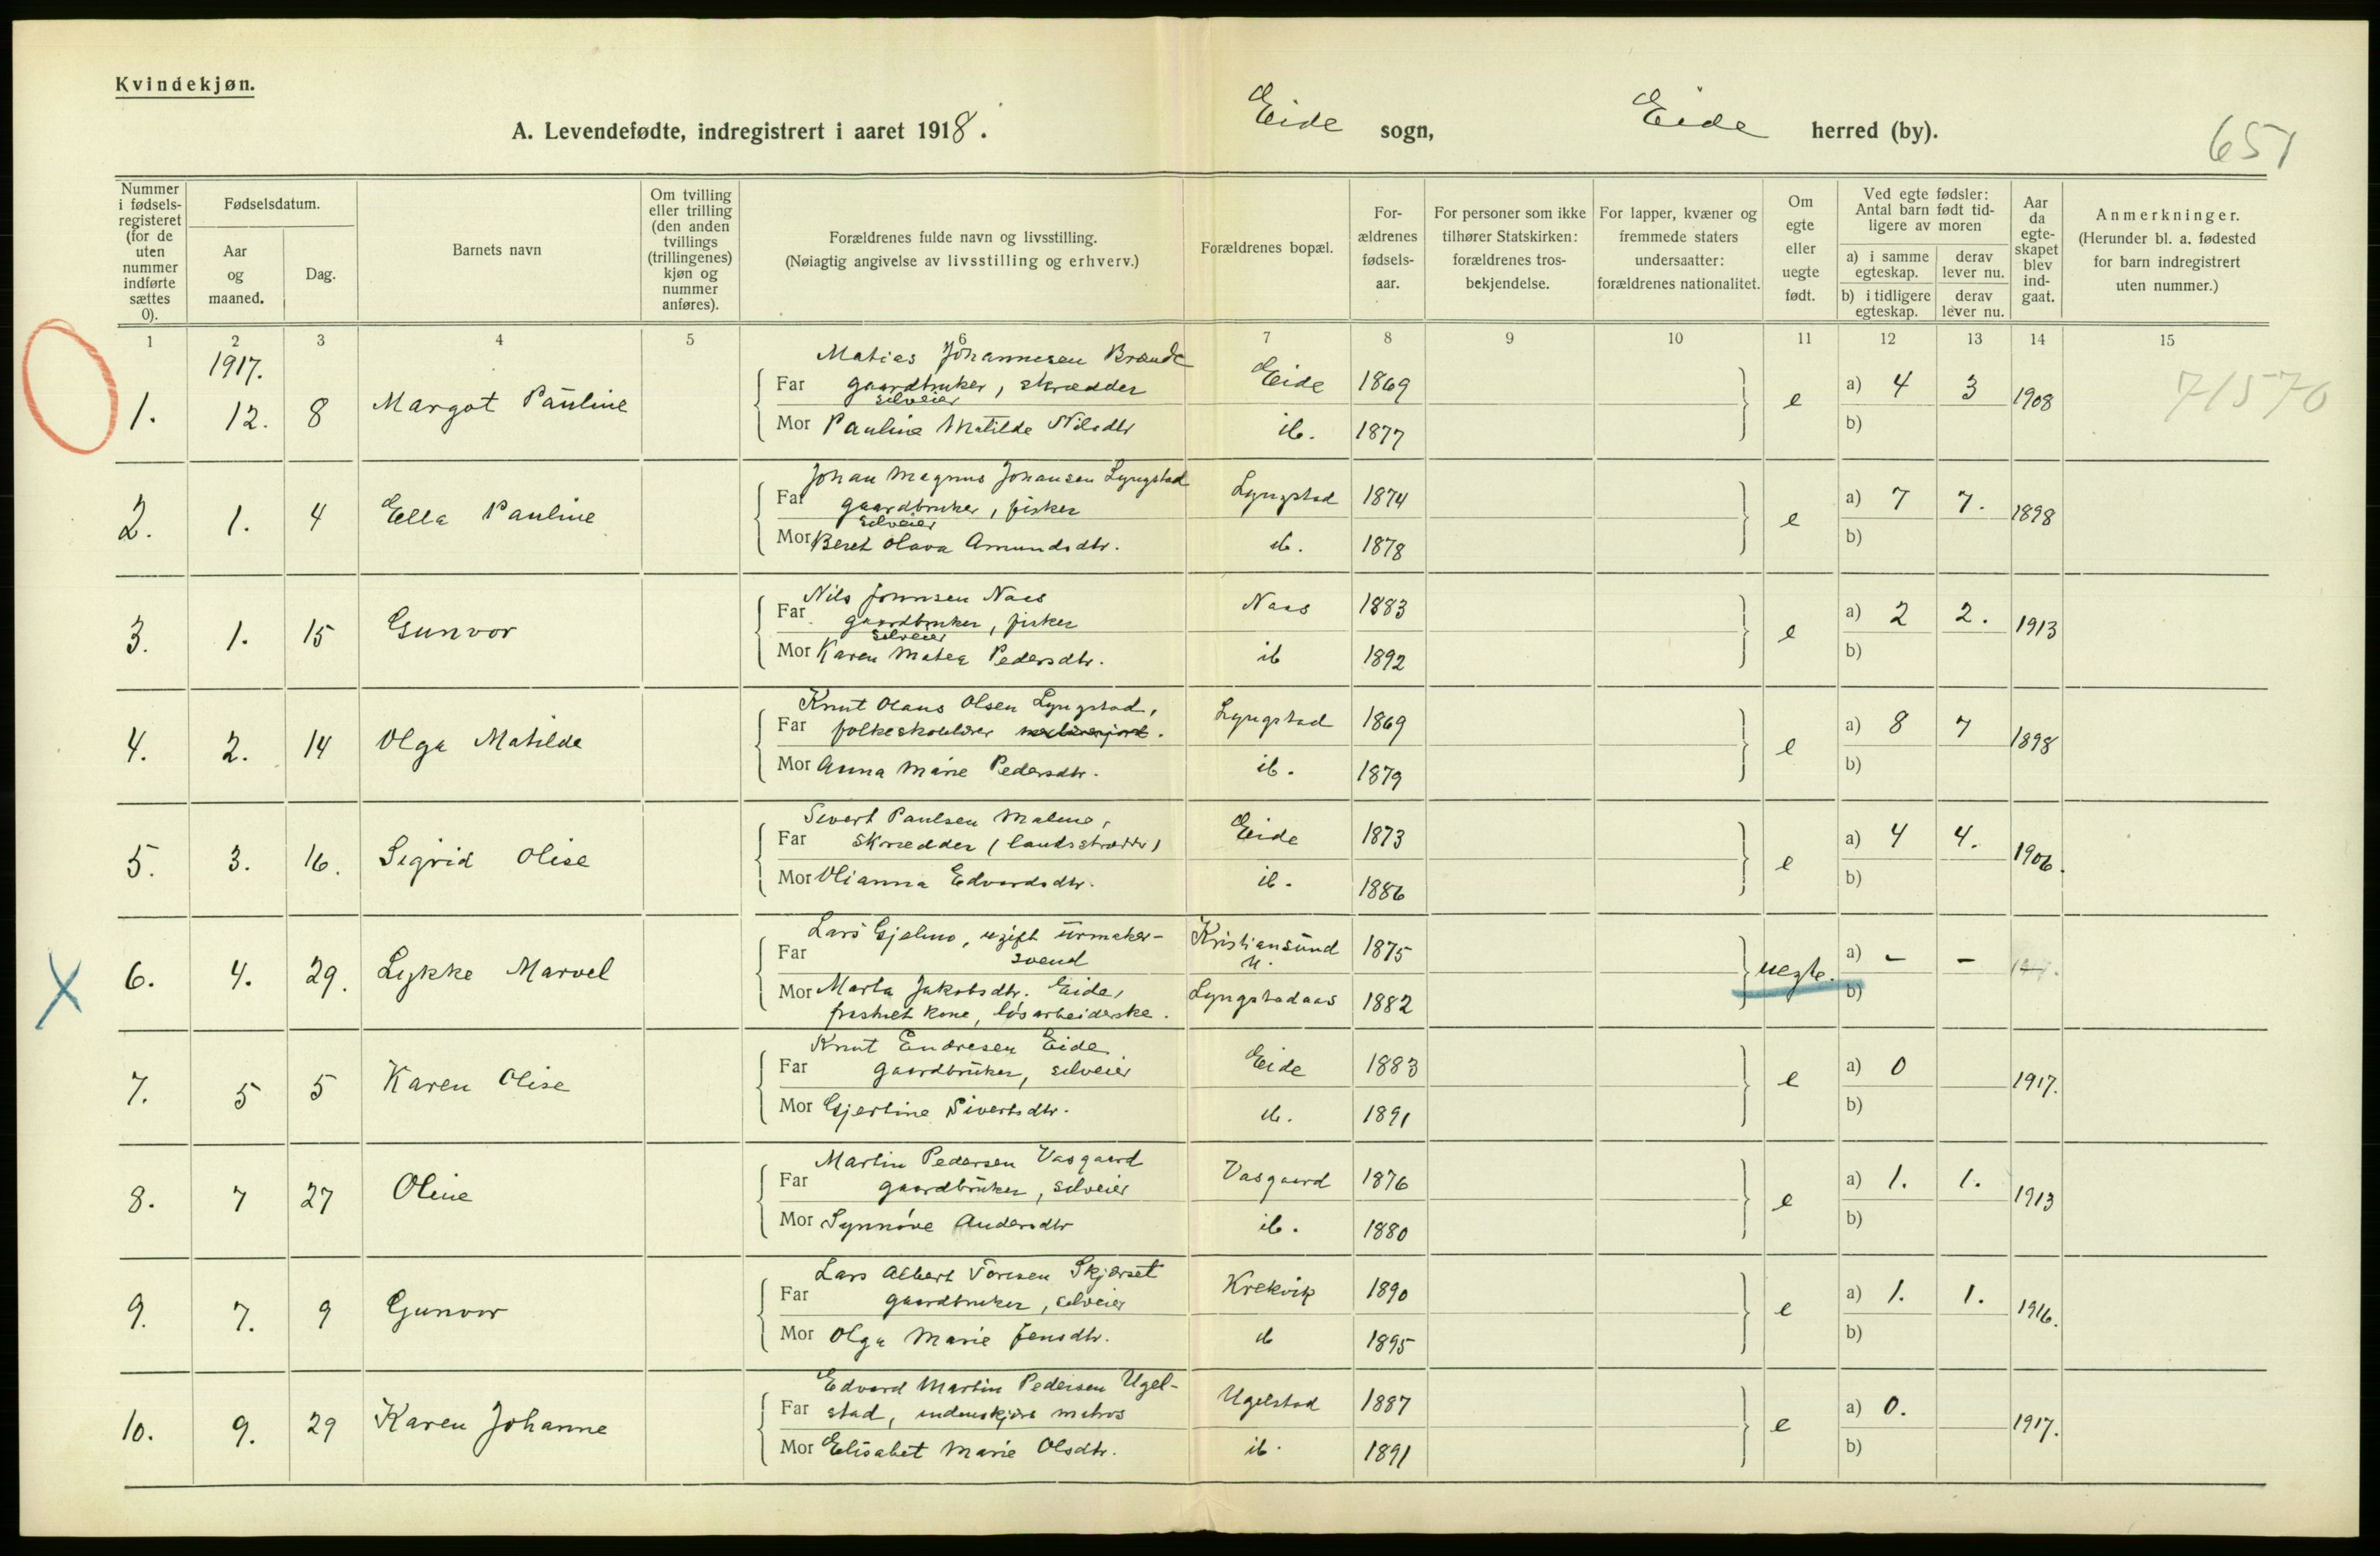 Kvindekjøn.
A. Levendefødte, indregistrert i aaret 1918. Eide sogn, Eide herred (by).
651
Nummer i fødselsregisteret (for de uten nummer indførte sættes 0).
Fødselsdatum.
Aar og maaned.
Dag.
Barnets navn
Om tvilling eller trilling (den anden tvillings (trillingenes) kjøn og nummer anføres).
Forældrenes fulde navn og livsstilling.
(Nøiagtig angivelse av livsstilling og erhverv.)
Forældrenes bopæl.
Forældrenes fødselsaar.
For personer som ikke tilhører Statskirken: forældrenes trosbekjendelse.
For lapper, kvæner og fremmede staters undersaatter: forældrenes nationalitet.
Om egte eller uegte født.
Ved egte fødsler: Antal barn født tidligere av moren
a) i samme egteskap.
derav lever nu.
b) i tidligere egteskap.
derav lever nu.
Aar da egteskapet blev indgaat.
Anmerkninger.
(Herunder bl. a. fødested for barn indregistrert uten nummer.)
1 2 3 4 5 6 7 8 9 10 11 12 13 14 15
1917.
Matias Johannesen Brande
1. 12. 8 Margot Pauline Far gaardbruker, skrædder Eide 1869 e a) 4 3 1908 71570
selveier
Mor Pauline Matilde Nilsdtr ib. 1877 b)
Johan Magnus Johansen Lyngstad
2. 1. 4 Ella Pauline Far gaardbruker, fisker Lyngstad 1874 e a) 7 7. 1898
selveier
Mor Beret Olava Amundsdtr. ib. 1878 b)
Nils Jonnsen Naas
3. 1. 15 Gunvor Far gaardbruker, fisker Naas 1883 e a) 2 2. 1913
selveier
Mor Karen Matea Pedersdtr. ib 1892 b)
Knut Olaus Olsen Lyngstad,
4. 2. 14 Olga Matilde Far folkeskolelærer Lyngstad 1869 e a) 8 7 1898
Mor Anna Marie Pedersdtr. ib. 1879 b)
Sivert Paulsen Malmo,
5. 3. 16. Sigrid Olise Far skrædder (landsskrædder) Eide 1873 e a) 4 4. 1906.
Mor Olianna Edvardsdtr. ib. 1886 b)
Lars Gjelmo, ugift urmaker-
6. 4. 29. Lykke Marvel Far svend Kristiansund N. 1875 uegte. a) - -
Mor Marta Jakobsdtr. Eide, Lyngstadaas 1882 b)
fraskilt kone, løsarbeiderske.
Knut Endresen Eide
7. 5 5 Karen Olise Far gaardbruker, selveier Eide 1883 e a) 0 1917.
Mor Gjertine Sivertsdtr. ib. 1891 b)
Martin Pedersen Vasgaard
8. 7 27 Oline Far gaardbruker, selveier Vasgaard 1876 e a) 1. 1. 1913
Mor Synnøve Andersdtr ib. 1880 b)
Lars Albert Toresen Skjærset
9. 7. 9 Gunvor Far gaardbruker, selveier Krekvik 1890 e a) 1. 1. 1916.
Mor Olga Marie Jensdtr. ib 1895 b)
Edvard Martin Pedersen Ugel-
10. 9. 29 Karen Johanne Far stad, indenskjærs matros Ugelstad 1887 e a) 0. 1917.
Mor Elisabet Marie Olsdtr. ib. 1891 b)